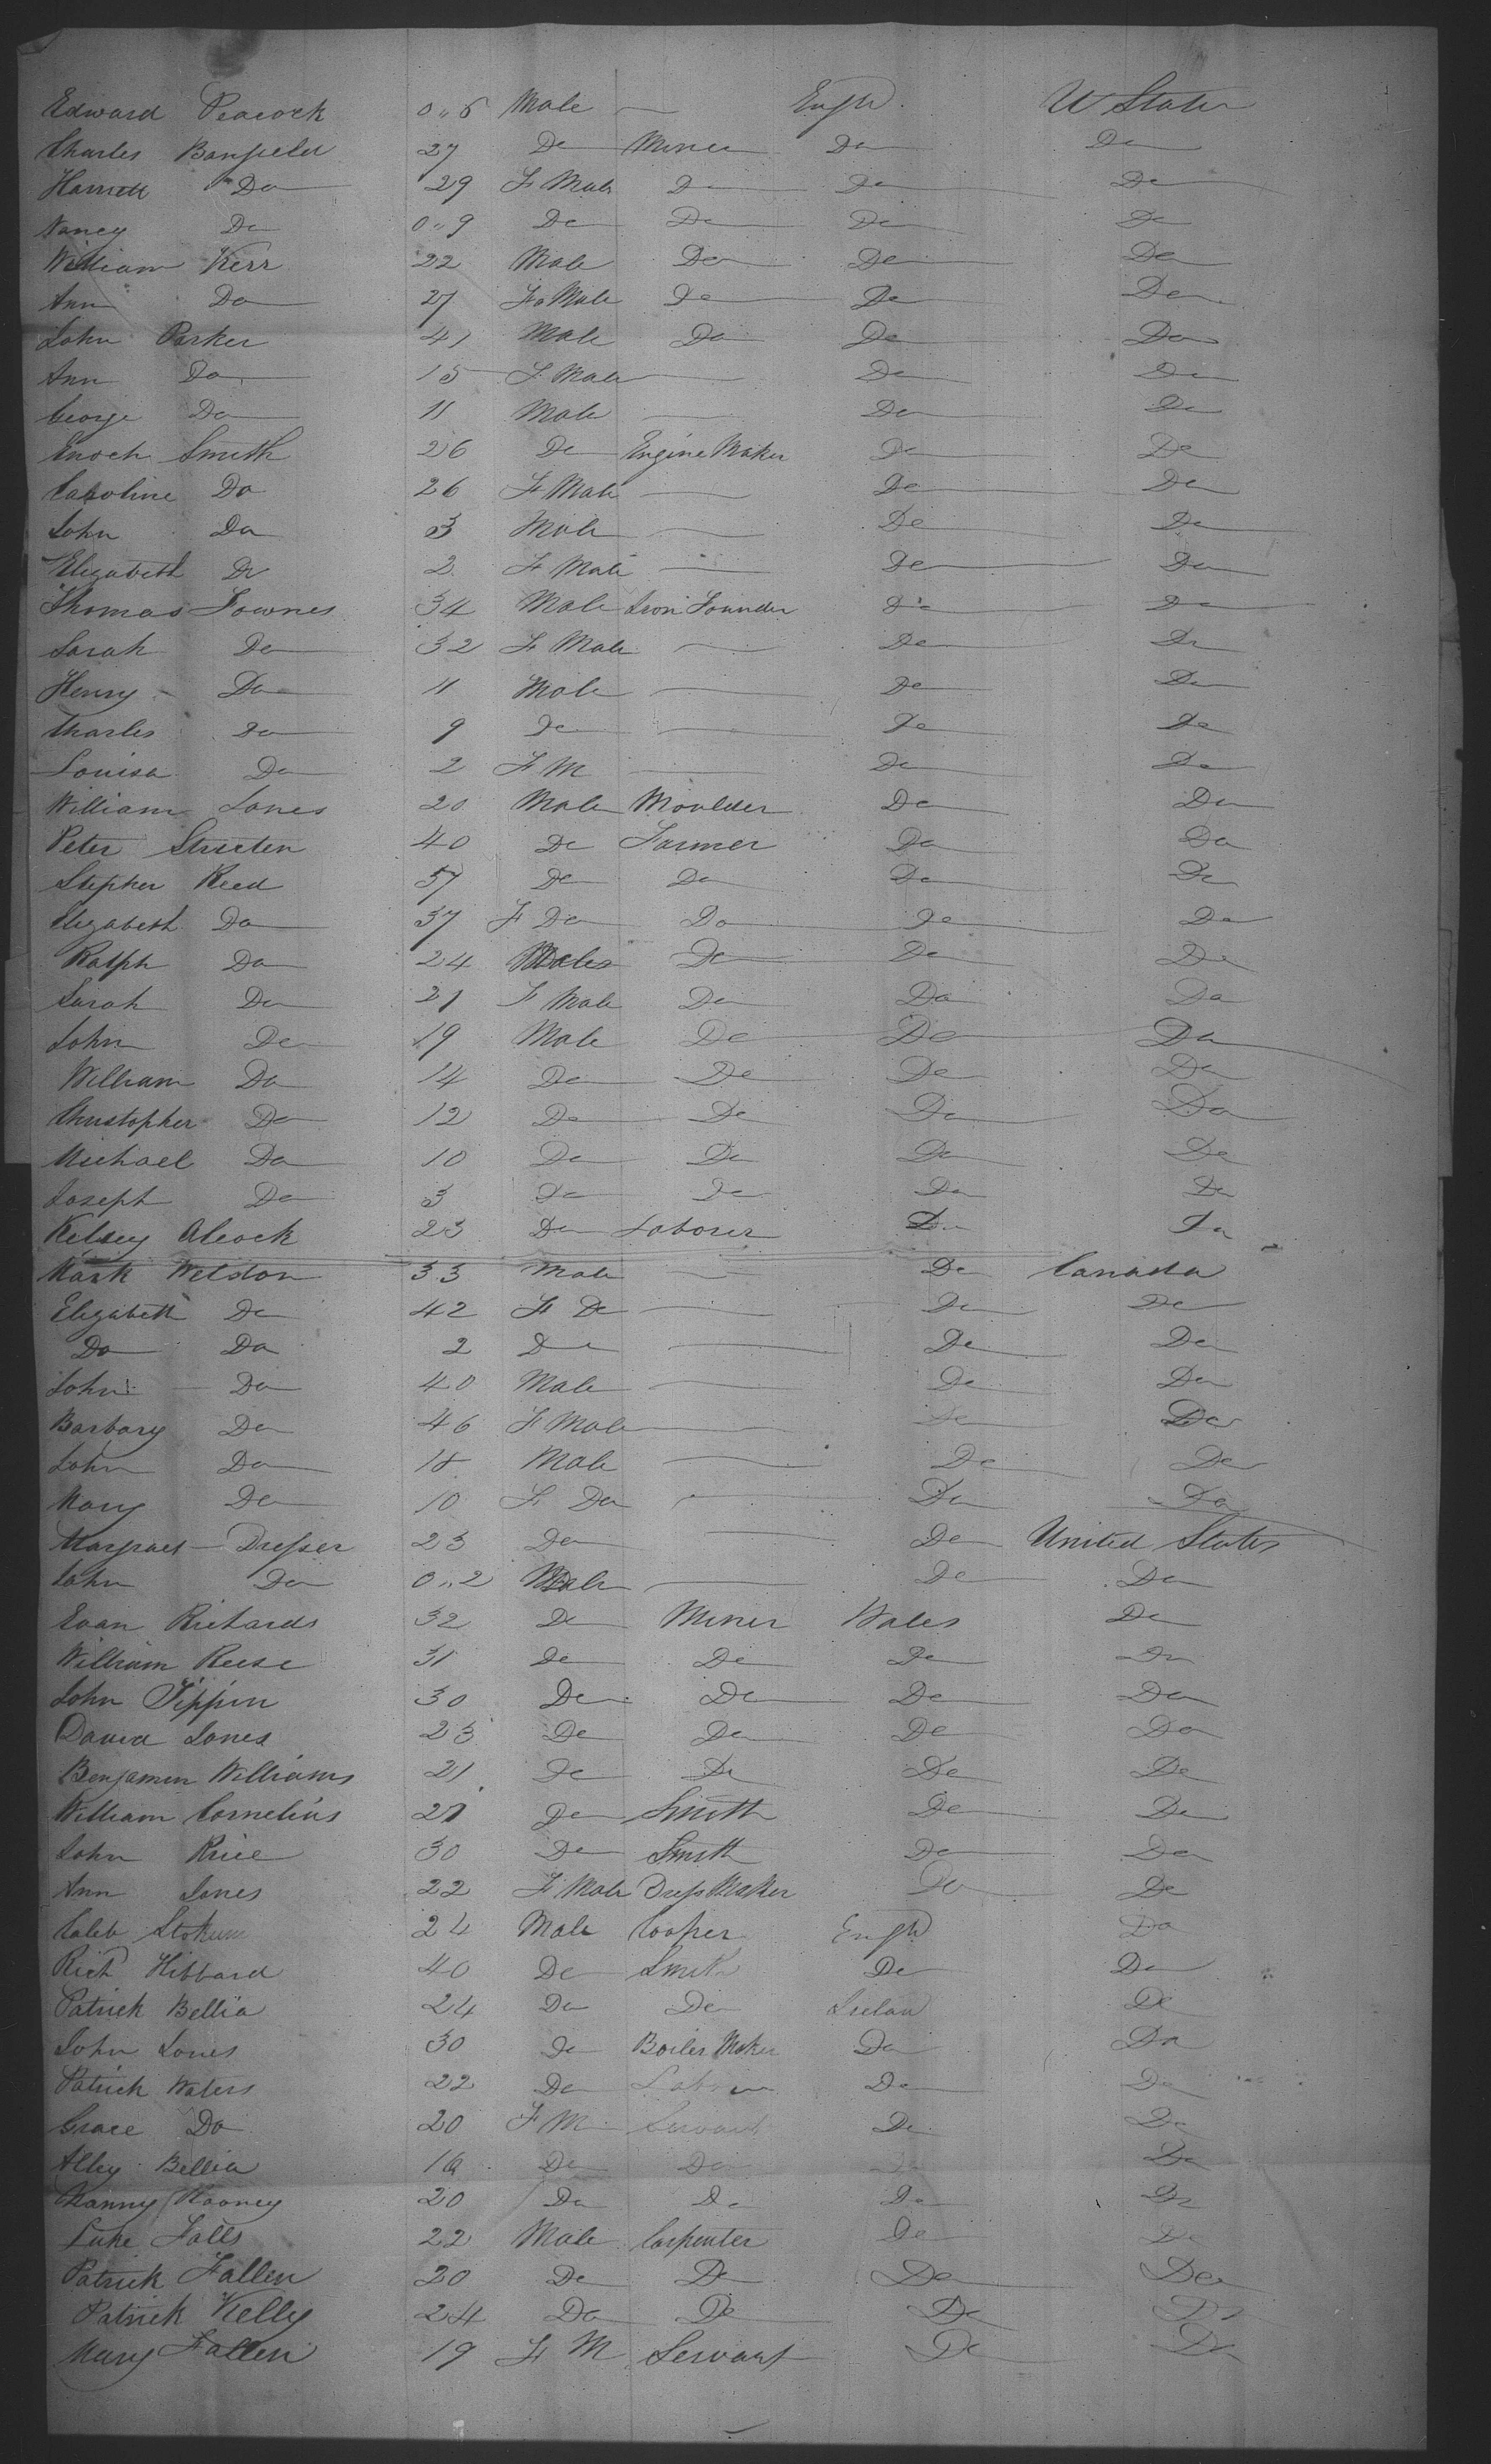 Edward Peacock 0"6 Male — Engld. U States
Charles Banfield 27 Do Miner Do Do
Harriett Do 29 F Male Do Do Do
Nancy Do 0"9 Do Do Do Do
William Kerr 22 Male Do Do Do
Ann Do 27 Fe Male Do Do Do
John Parker 41 Male Do Do Do
Ann Do 15 F Male — Do Do
George Do 11 Male — Do Do
Enoch Smith 26 Do Engine Maker Do Do
Caroline Do 26 F Male — Do Do
John Do 3 Male — Do Do
Elizabeth Do 2 F Male — Do Do
Thomas Fownes 34 Male Iron Founder Do Do
Sarah Do 32 F Male — Do Do
Henry Do 11 Male — Do Do
Charles Do 9 Do — Do Do
Louisa Do 2 F M — Do Do
William Jones 20 Male Moulder Do Do
Peter Streeten 40 Do Farmer Do Do
Stepher Reed 57 Do Do Do Do
Elizabeth Do 37 F Do Do Do Do
Ralph Do 24 Males Do Do Do
Sarah Do 21 F Male Do Do Do
John Do 19 Male Do Do Do
William Do 14 Do Do Do Do
Christopher Do 12 Do Do Do Do
Michael Do 10 Do Do Do Do
Joseph Do 3 Do Do Do Do
Kelsey Alcock 23 Do Laborer Do Do
Mark Weldon 33 Male — Do Canada
Elizabeth Do 42 F Do — Do Do
Do Do 2 Do — Do Do
John Do 40 Male — Do Do
Barbary Do 46 F Male — Do Do
John Do 18 Male — Do Do
Mary Do 10 F Do — Do Do
Margraet Dresser 23 Do — Do United States
John Do 0"2 Male — Do Do
Evan Richards 32 Do Miner Wales Do
William Reese 31 Do Do Do Do
John Tippin 30 Do Do Do Do
David Jones 23 Do Do Do Do
Benjamin Williams 21 Do Do Do Do
William Cornelius 21 Do Smith Do Do
John Price 30 Do Smith Do Do
Ann Jones 22 F Male Dress Maker Do Do
Caleb Stokum 24 Male Cooper Engld Do
Richd Hibbard 40 Do Smith Do Do
Patrick Bellia 24 Do Do Irelan Do
John Jones 30 Do Boiler Maker Do Do
Patrick Waters 22 Do Laborer Do Do
Grace Do 20 F M Servant Do Do
Alley Bellia 16 Do Do Do
Nanny Rooney 20 Do Do Do Do
Luke Falls 22 Male Carpenter Do Do
Patrick Fallen 20 Do Do Do Do
Patrick Kelly 24 Do Do Do Do
Mary Fallen 19 F M Servant Do Do